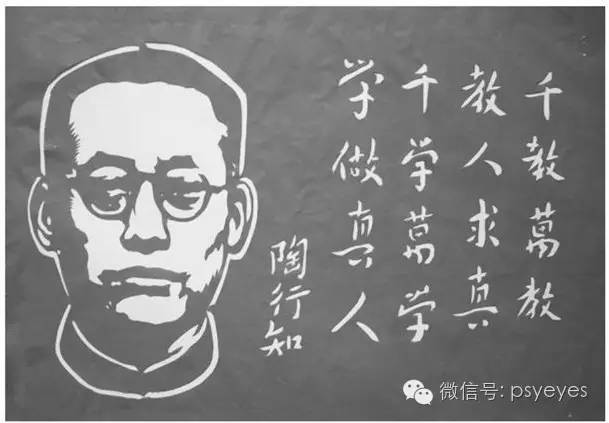 千教萬教
教人求真
千学萬学
学做真人
陶行知
微信号: psyeyes